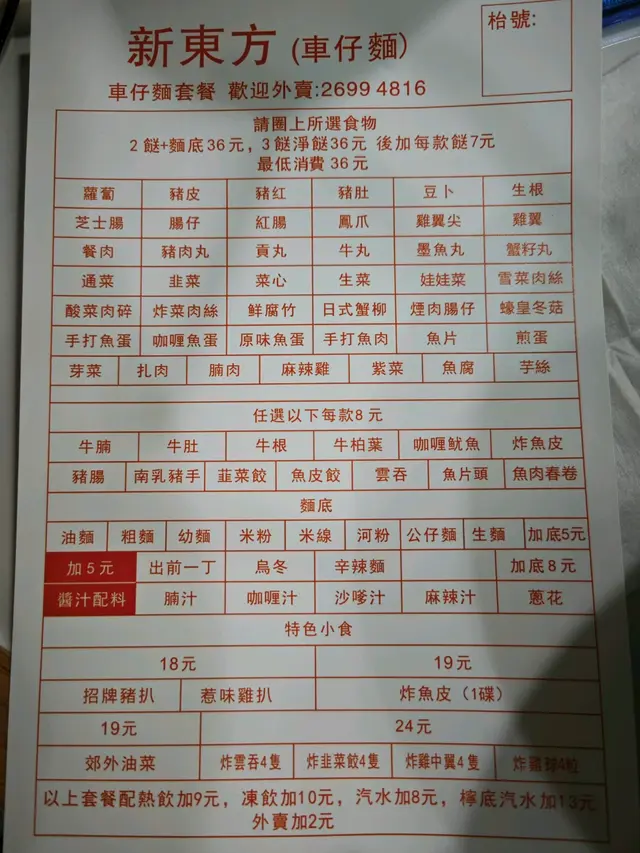 新東方 (車仔麵)
枱號:
車仔麵套餐 歡迎外賣:2699 4816
請圈上所選食物
2餸+麵底36元, 3餸淨餸36元 後加每款餸7元
最低消費 36元
蘿蔔 豬皮 豬紅 豬肚 豆卜 生根
芝士腸 腸仔 紅腸 鳳爪 雞翼尖 雞翼
餐肉 豬肉丸 貢丸 牛丸 墨魚丸 蟹籽丸
通菜 韭菜 菜心 生菜 娃娃菜 雪菜肉絲
酸菜肉碎 炸菜肉絲 鮮腐竹 日式蟹柳 煙肉腸仔 蠔皇冬菇
手打魚蛋 咖喱魚蛋 原味魚蛋 手打魚肉 魚片 煎蛋
芽菜 扎肉 腩肉 麻辣雞 紫菜 魚腐 芋絲
任選以下每款8元
牛腩 牛肚 牛根 牛柏葉 咖喱魷魚 炸魚皮
豬腸 南乳豬手 韮菜餃 魚皮餃 雲吞 魚片頭 魚肉春卷
麵底
油麵 粗麵 幼麵 米粉 米線 河粉 公仔麵 生麵 加底5元
加5元 出前一丁 烏冬 辛辣麵 加底8元
醬汁配料 腩汁 咖喱汁 沙嗲汁 麻辣汁 蔥花
特色小食
18元 19元
招牌豬扒 惹味雞扒 炸魚皮 (1碟)
19元 24元
郊外油菜 炸雲吞4隻 炸韭菜餃4隻 炸雞中翼4隻 炸雞球4粒
以上套餐配熱飲加9元, 凍飲加10元, 汽水加8元, 檸底汽水加13元
外賣加2元